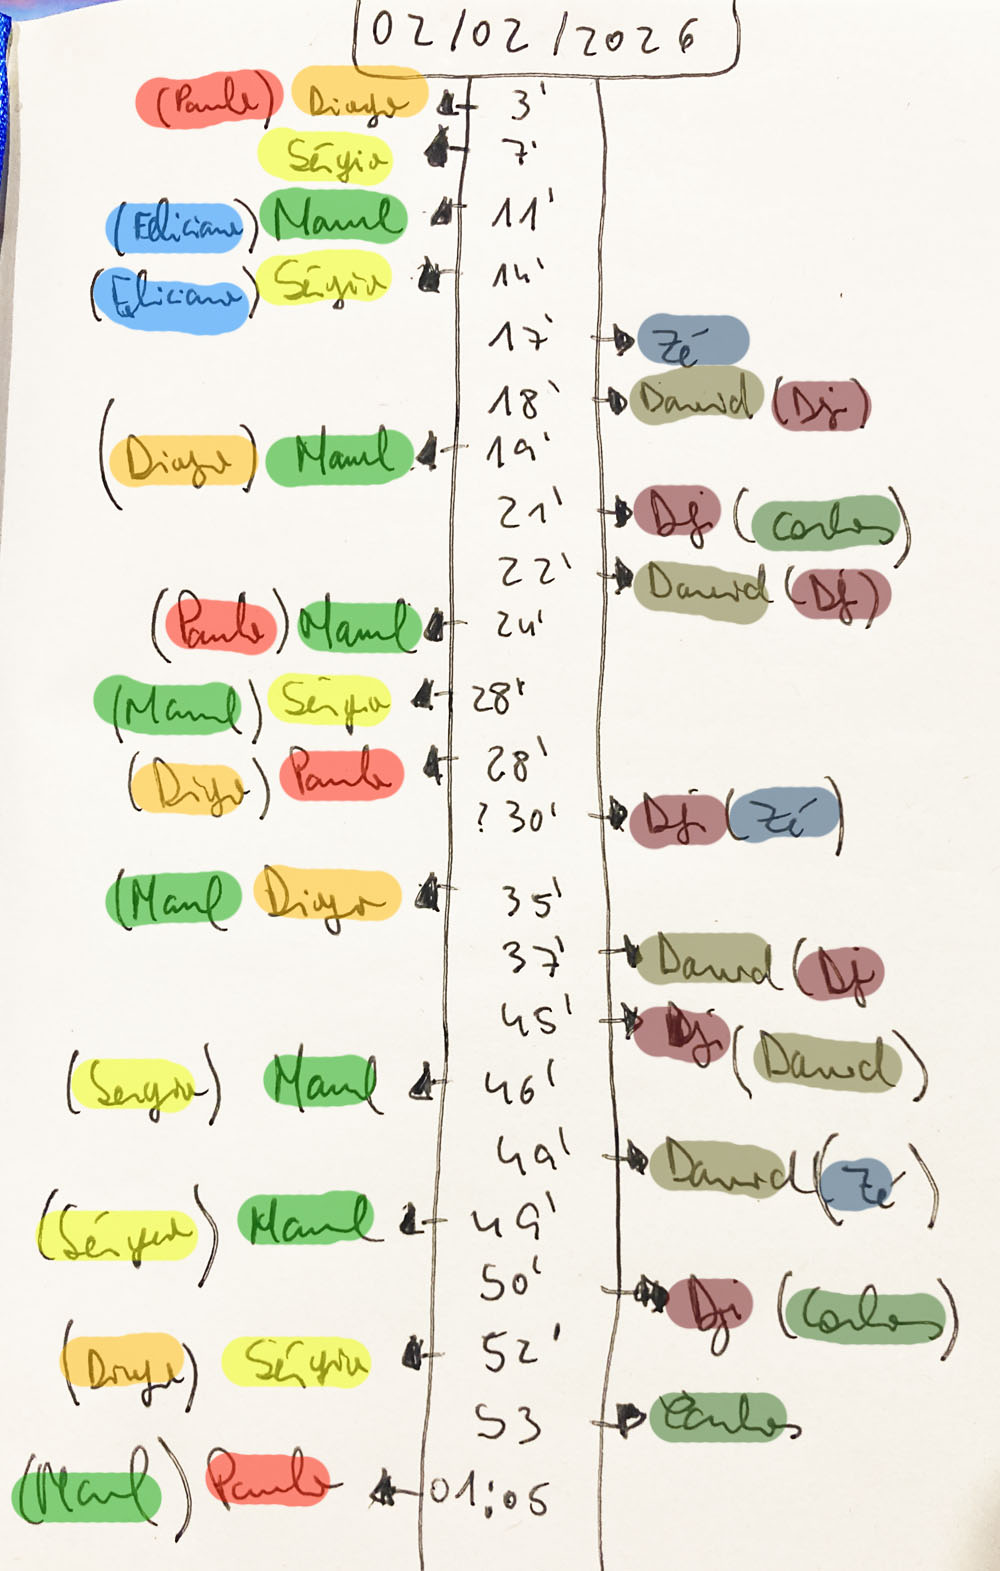 02/02/2026
(Paulo) Diogo 3'
Sérgio 7'
(Feliciano) Manel 11'
(Feliciano) Sérgio 14'
17' Zé
18' David (Dj)
(Diogo) Manel 19'
21' Dj (Carlos)
22' David (Dj)
(Paulo) Manel 24'
(Manel) Sérgio 28'
(Diogo) Paulo 28'
? 30' Dj (Zé)
(Manel Diogo 35'
37' David (Dj
45' Dj (David)
(Sergio) Manel 46'
49' David (Zé)
(Sérgio) Manel 49'
50' Dj (Carlos)
(Diogo) Sérgio 52'
53 Carlos
(Manel) Paulo 01:05